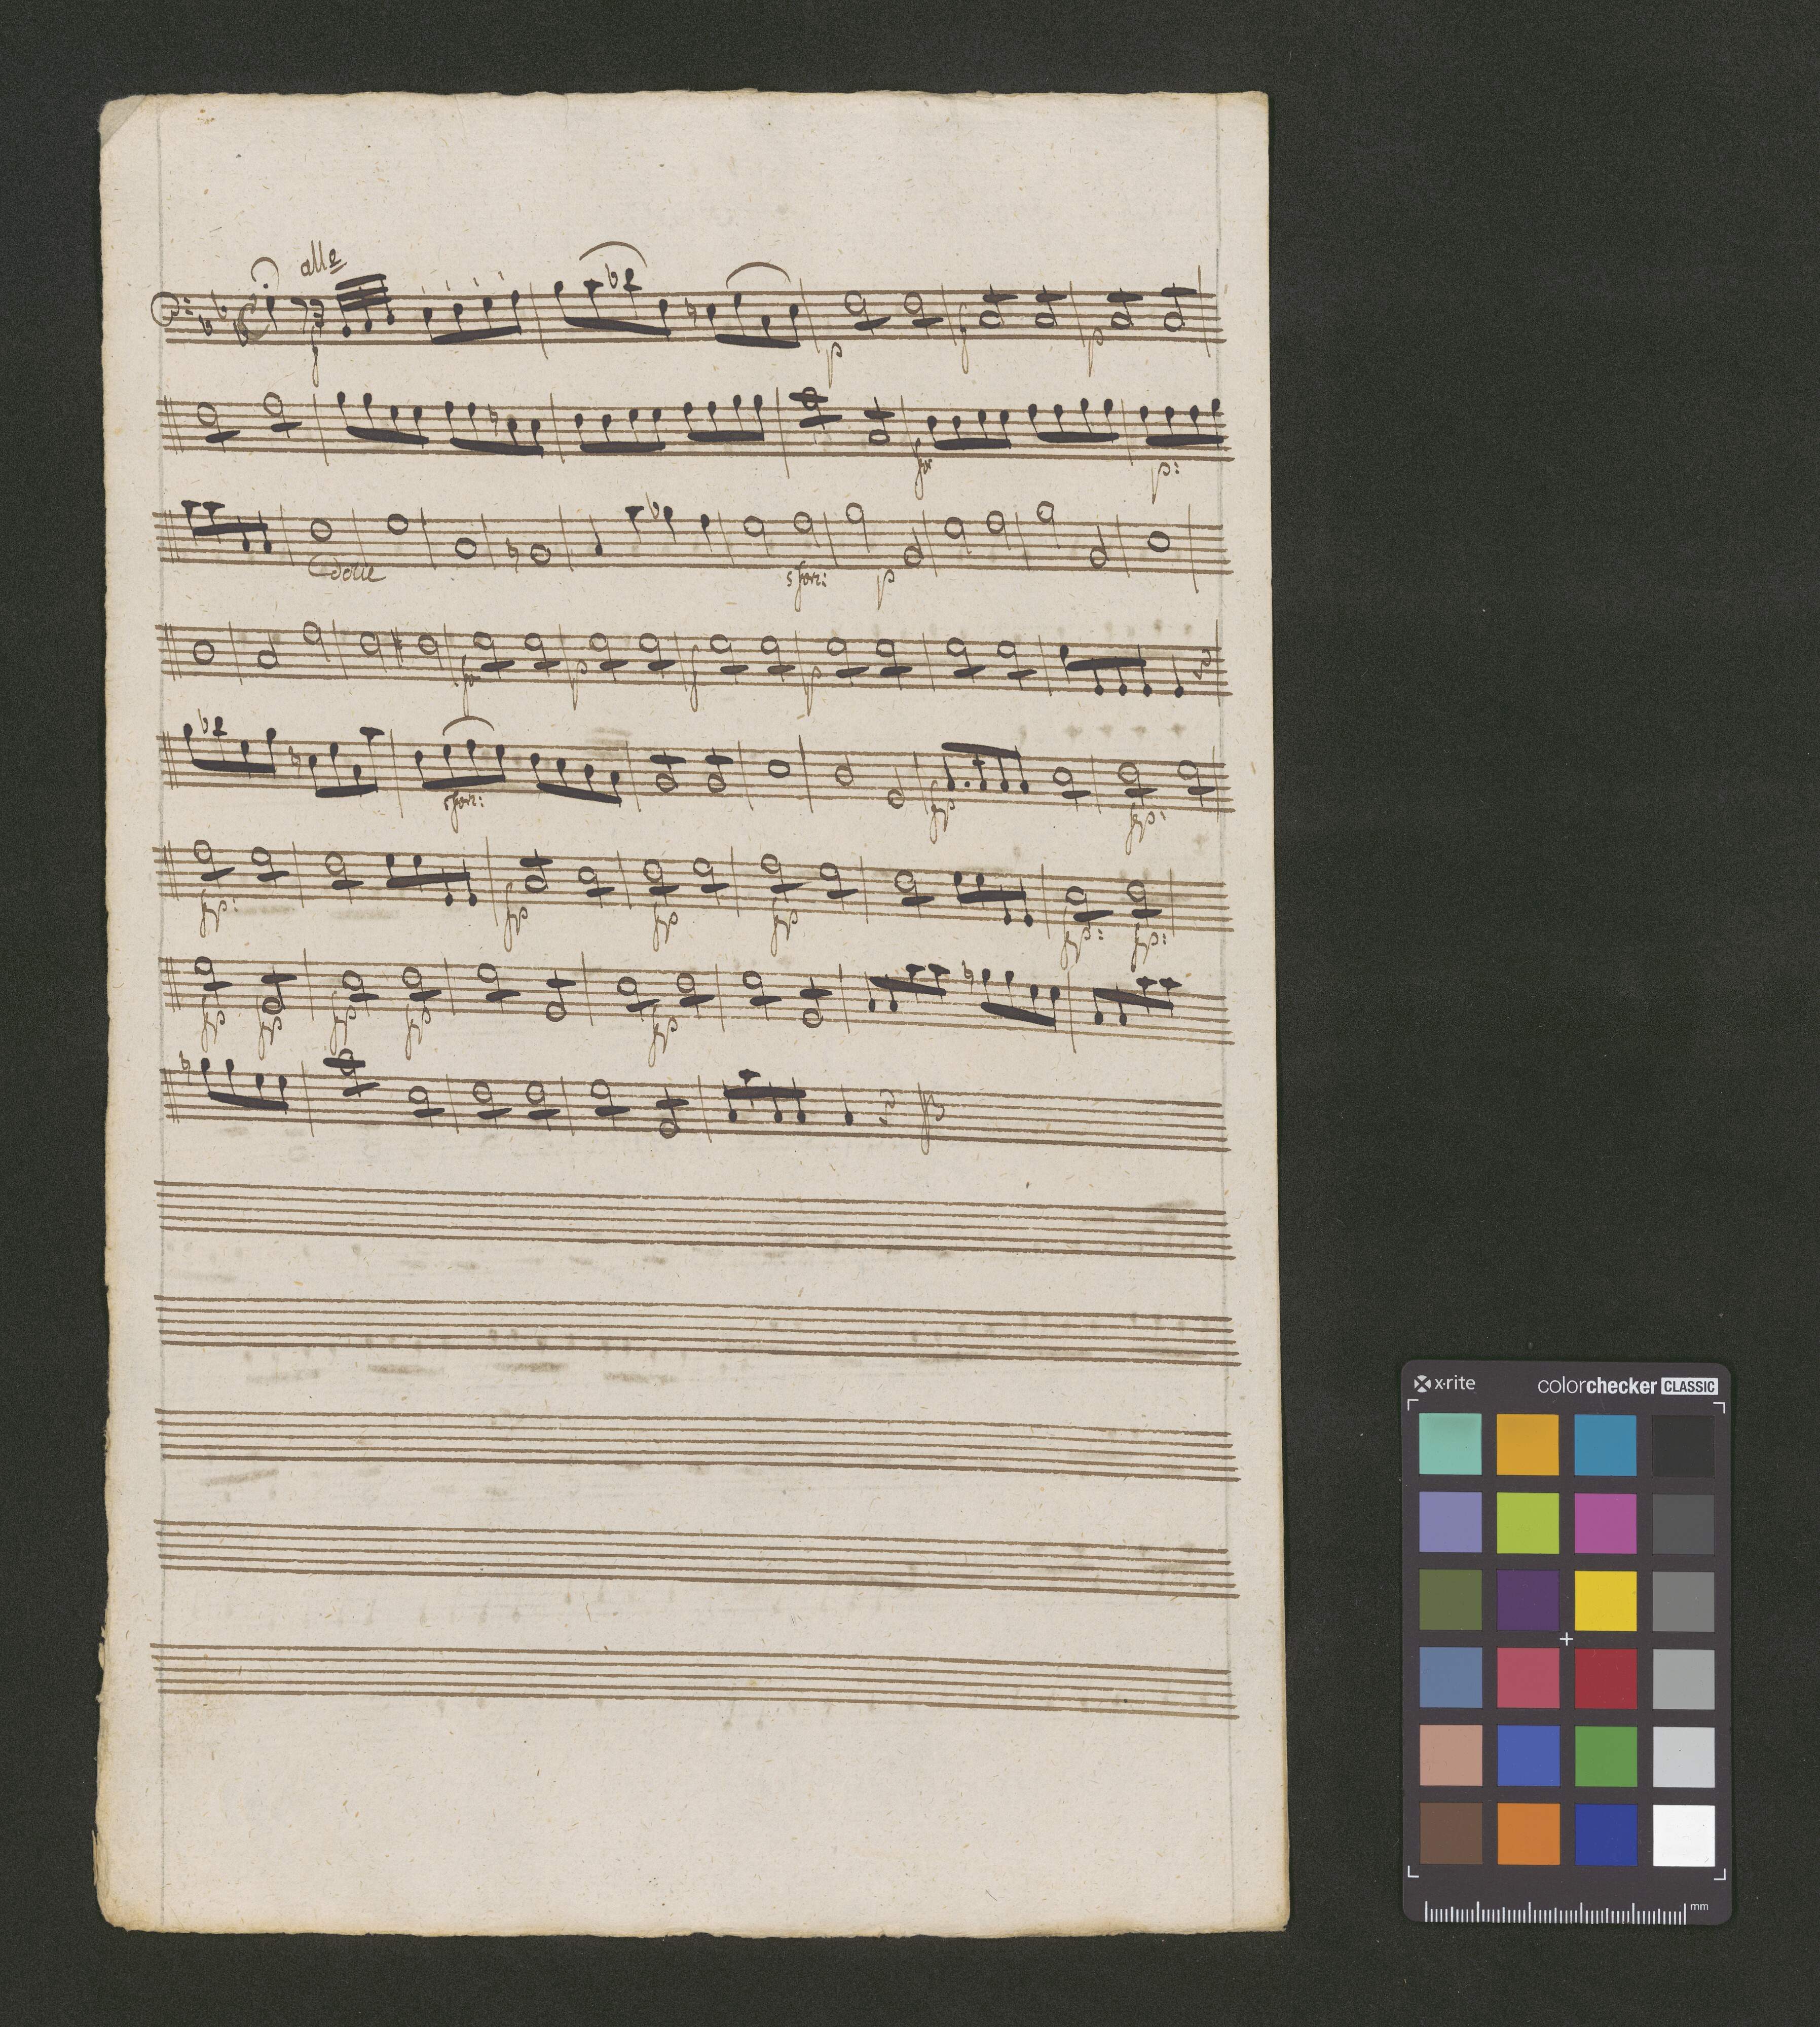 allo
f
p f p
for p:
dolce sforz: p
for p f p
sforz: fp fp:
fp: fp fp fp fp: fp:
fp fp fp fp fp
x·rite colorchecker CLASSIC
mm